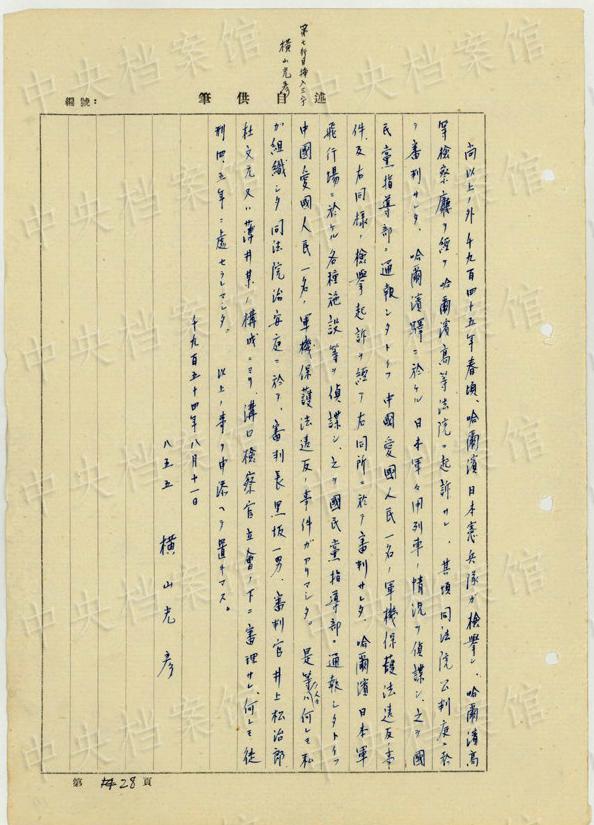 第七行目挿入三字
横山光彦
編號：
筆供自述
尚以上ノ外千九百四十五年春頃、哈爾濱日本憲兵隊ガ檢擧シ、哈爾濱高
等檢察廳ヲ經テ哈爾濱高等法院ニ起訴サレ、其頃同法院公判庭ニ於
テ審判サレタ、哈爾濱驛ニ於ケル日本軍々用列車ノ情況ヲ偵諜シ、之ヲ國
民黨指導部ニ通報シタトイフ中國愛國人民一名ノ軍機保護法違反ノ事
件、及右同樣ノ檢擧起訴ヲ經テ右同所ニ於テ審判サレタ、哈爾濱日本軍
飛行場ニ於ケル各種施設等ヲ偵諜シ、之ヲ國民黨指導部ニ通報シタトイフ
中國愛國人民一名ノ軍機保護法違反ノ事件ガアリマシタ。是等ハ何レモ私
ガ組織シタ同法院治安庭ニ於テ、審判長黑坂一男、審判官井上松治郎
杜文元又ハ薄井某ノ構成ニヨリ、溝口檢察官立會ノ下ニ審理サレ、何レモ徒
刑四、五年ニ處セラレマシタ。 以上ノ事ヲ申添ヘテ置キマス。
千九百五十四年八月十一日
八五五 橫山光彥
第 28 頁
中央档案馆